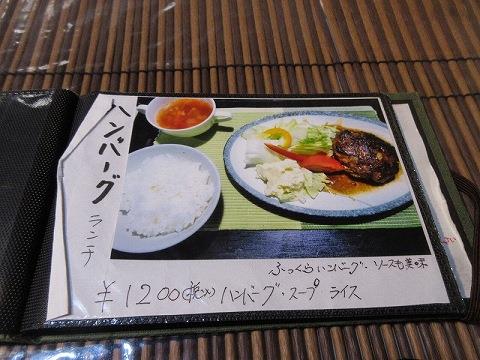 ハンバーグ
ランチ
ふっくらハンバーグ・ソースも美味
¥1200(税込)ハンバーグ・スープ ライス